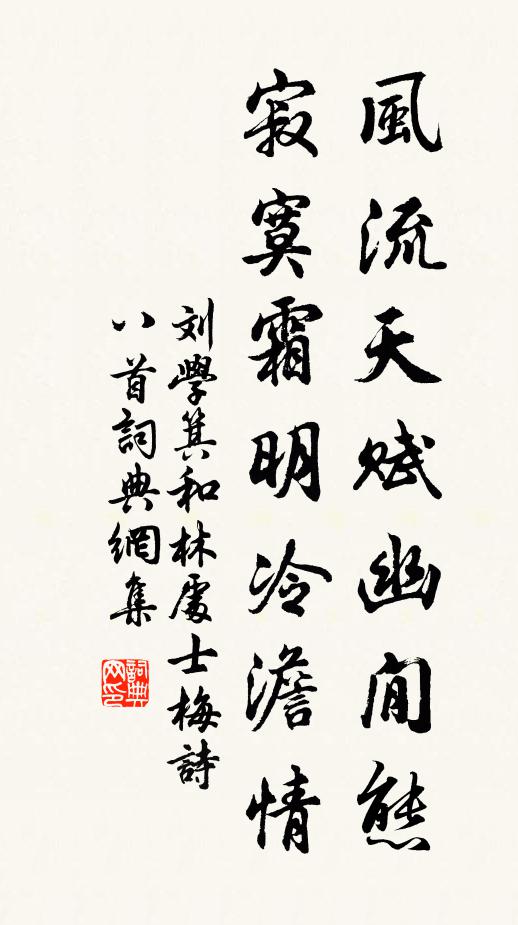 風流天赋幽閒態
寂寞霜明冷澹情
刘學箕和林處士梅詩
八首詞典網集
詞典网印